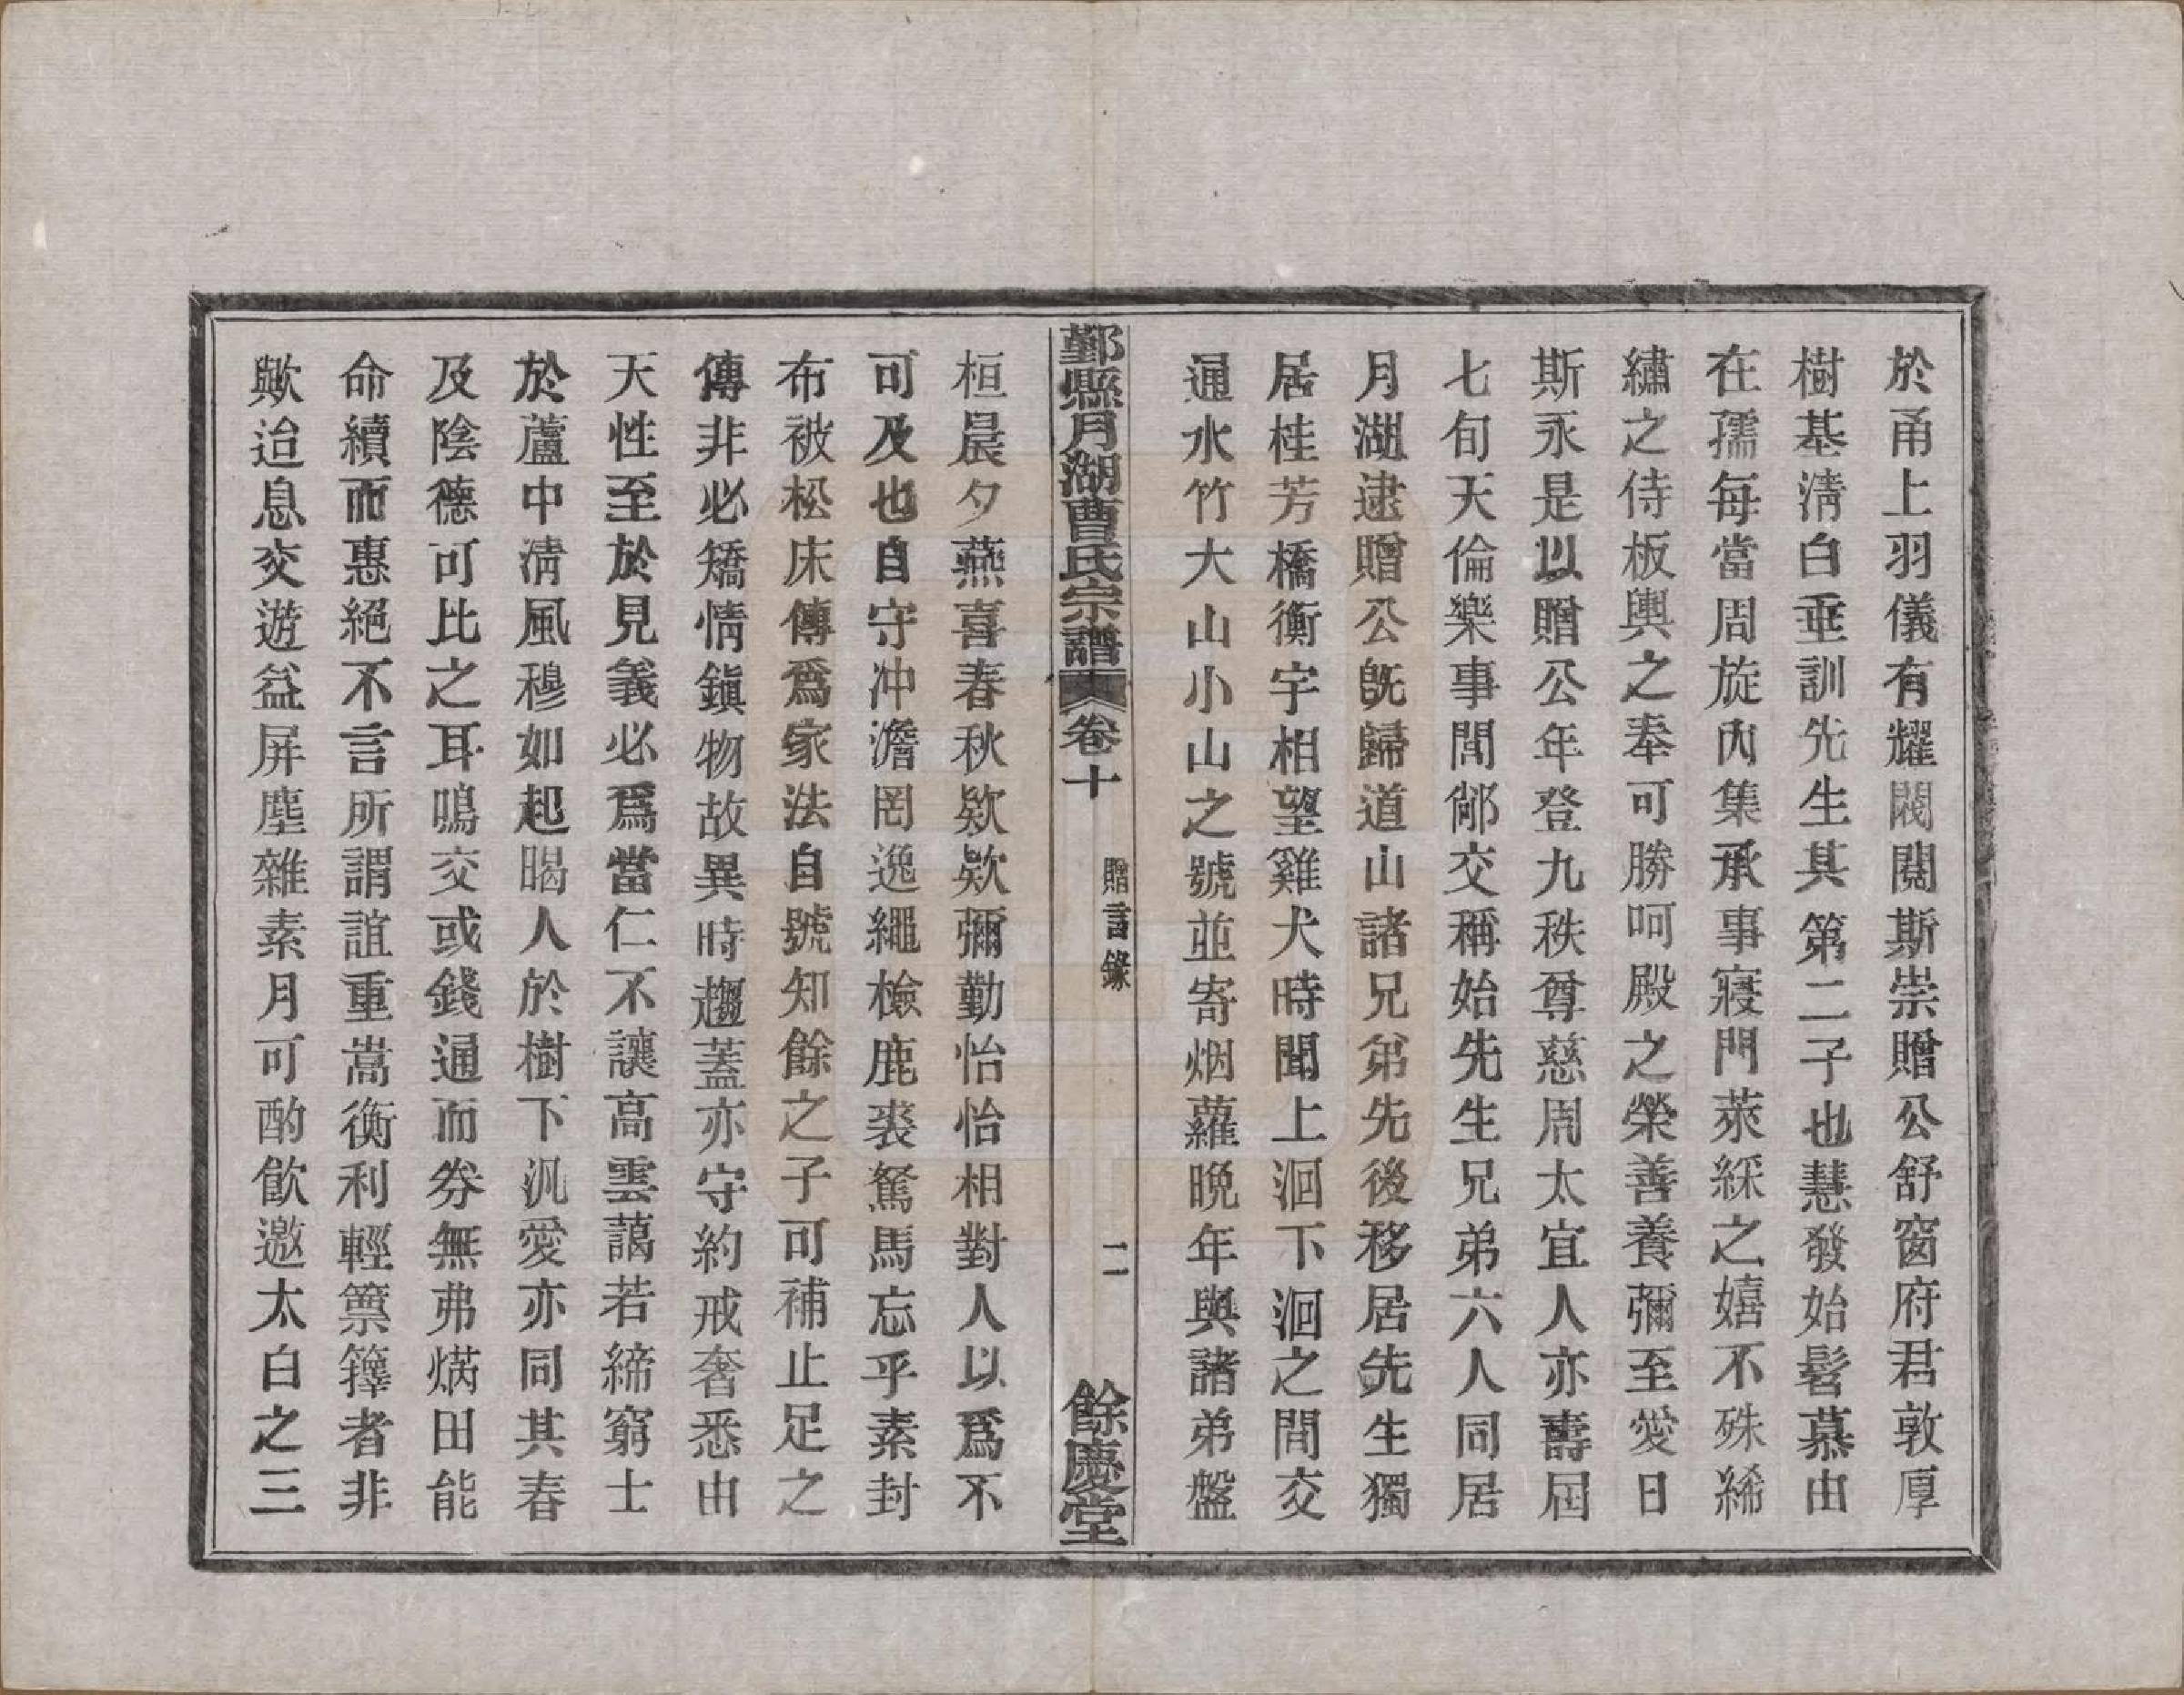 於甬上羽儀有耀閥閱斯崇贈公舒窗府君敦厚
樹基淸白垂訓先生其第二子也慧發始髫慕由
在孺每當周旋內集承事寢門萊綵之嬉不殊絺
繡之侍板輿之奉可勝呵殿之榮善養彌至愛日
斯永是以贈公年登九秩尊慈周太宜人亦壽屆
七旬天倫樂事閭鄰交稱始先生兄弟六人同居
月湖逮贈公旣歸道山諸兄弟先後移居先生獨
居桂芳橋衡宇相望雞犬時聞上洄下洄之間交
通水竹大山小山之號並寄烟蘿晚年與諸弟盤
鄞縣月湖曹氏宗譜
卷十
贈言錄
二
餘慶堂
桓晨夕燕喜春秋欵欵彌勤怡怡相對人以爲不
可及也自守冲澹罔逸繩檢鹿裘駑馬忘乎素封
布被松床傳爲家法自號知餘之子可補止足之
傳非必矯情鎭物故異時趨蓋亦守約戒奢悉由
天性至於見義必爲當仁不讓高雲藹若締窮士
於蘆中淸風穆如起暍人於樹下汎愛亦同其春
及陰德可比之耳鳴交或錢通而券無弗焫田能
命續而惠絕不言所謂誼重嵩衡利輕篻籜者非
歟迨息交遊益屏塵雜素月可酌飮邀太白之三